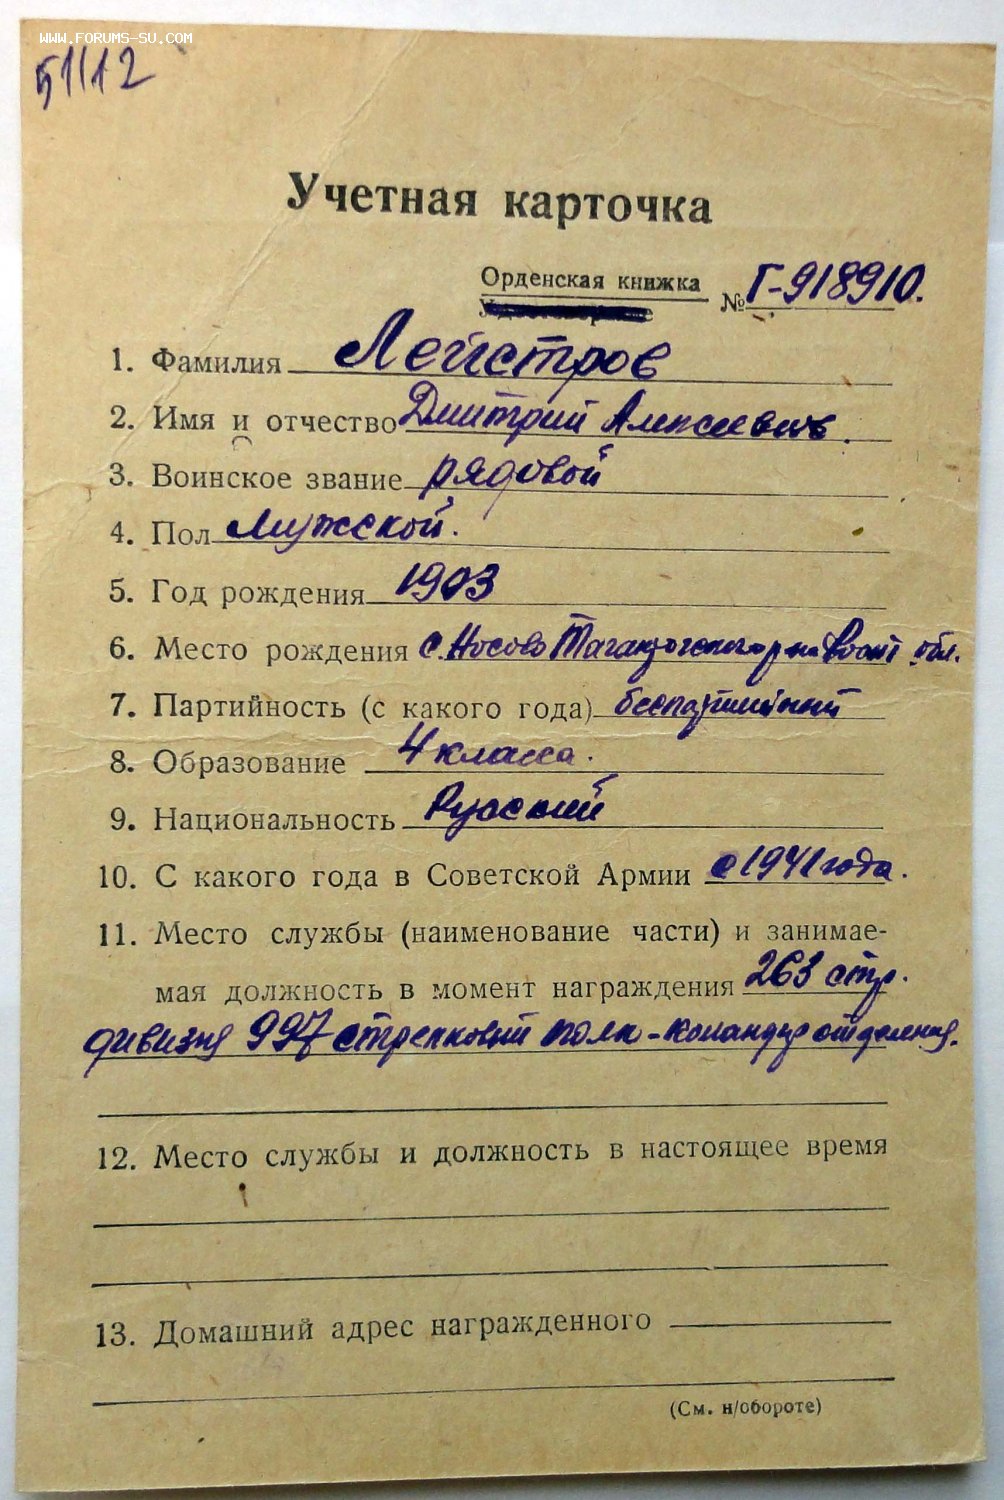 WWW.FORUMS-SU.COM
51112
Учетная карточка
Орденская книжка
№ Г-918910.
1. Фамилия Лейстров
2. Имя и отчество Дмитрий Алексеевич.
3. Воинское звание рядовой
4. Пол Мужской.
5. Год рождения 1903
6. Место рождения с. Носово Таганрогского р-на Рост обл.
7. Партийность (с какого года) беспартийный
8. Образование 4 класса.
9. Национальность Русский
10. С какого года в Советской Армии с 1941 года.
11. Место службы (наименование части) и занимае-
мая должность в момент награждения 263 стр.
дивизия 997 стрелковый полк - командир отделения.
12. Место службы и должность в настоящее время
13. Домашний адрес награжденного
(См. н/обороте)